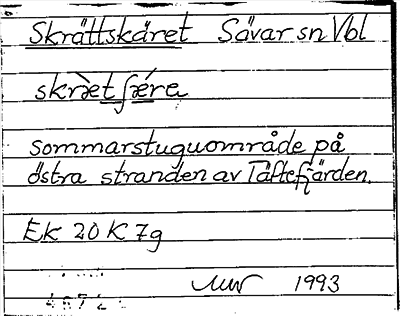 Skrättskäret Sävar sn Vbl
skrὲetʃǽre
sommarstuguområde på
östra stranden av Täftefjärden.
Ek 20 K 7g
1993